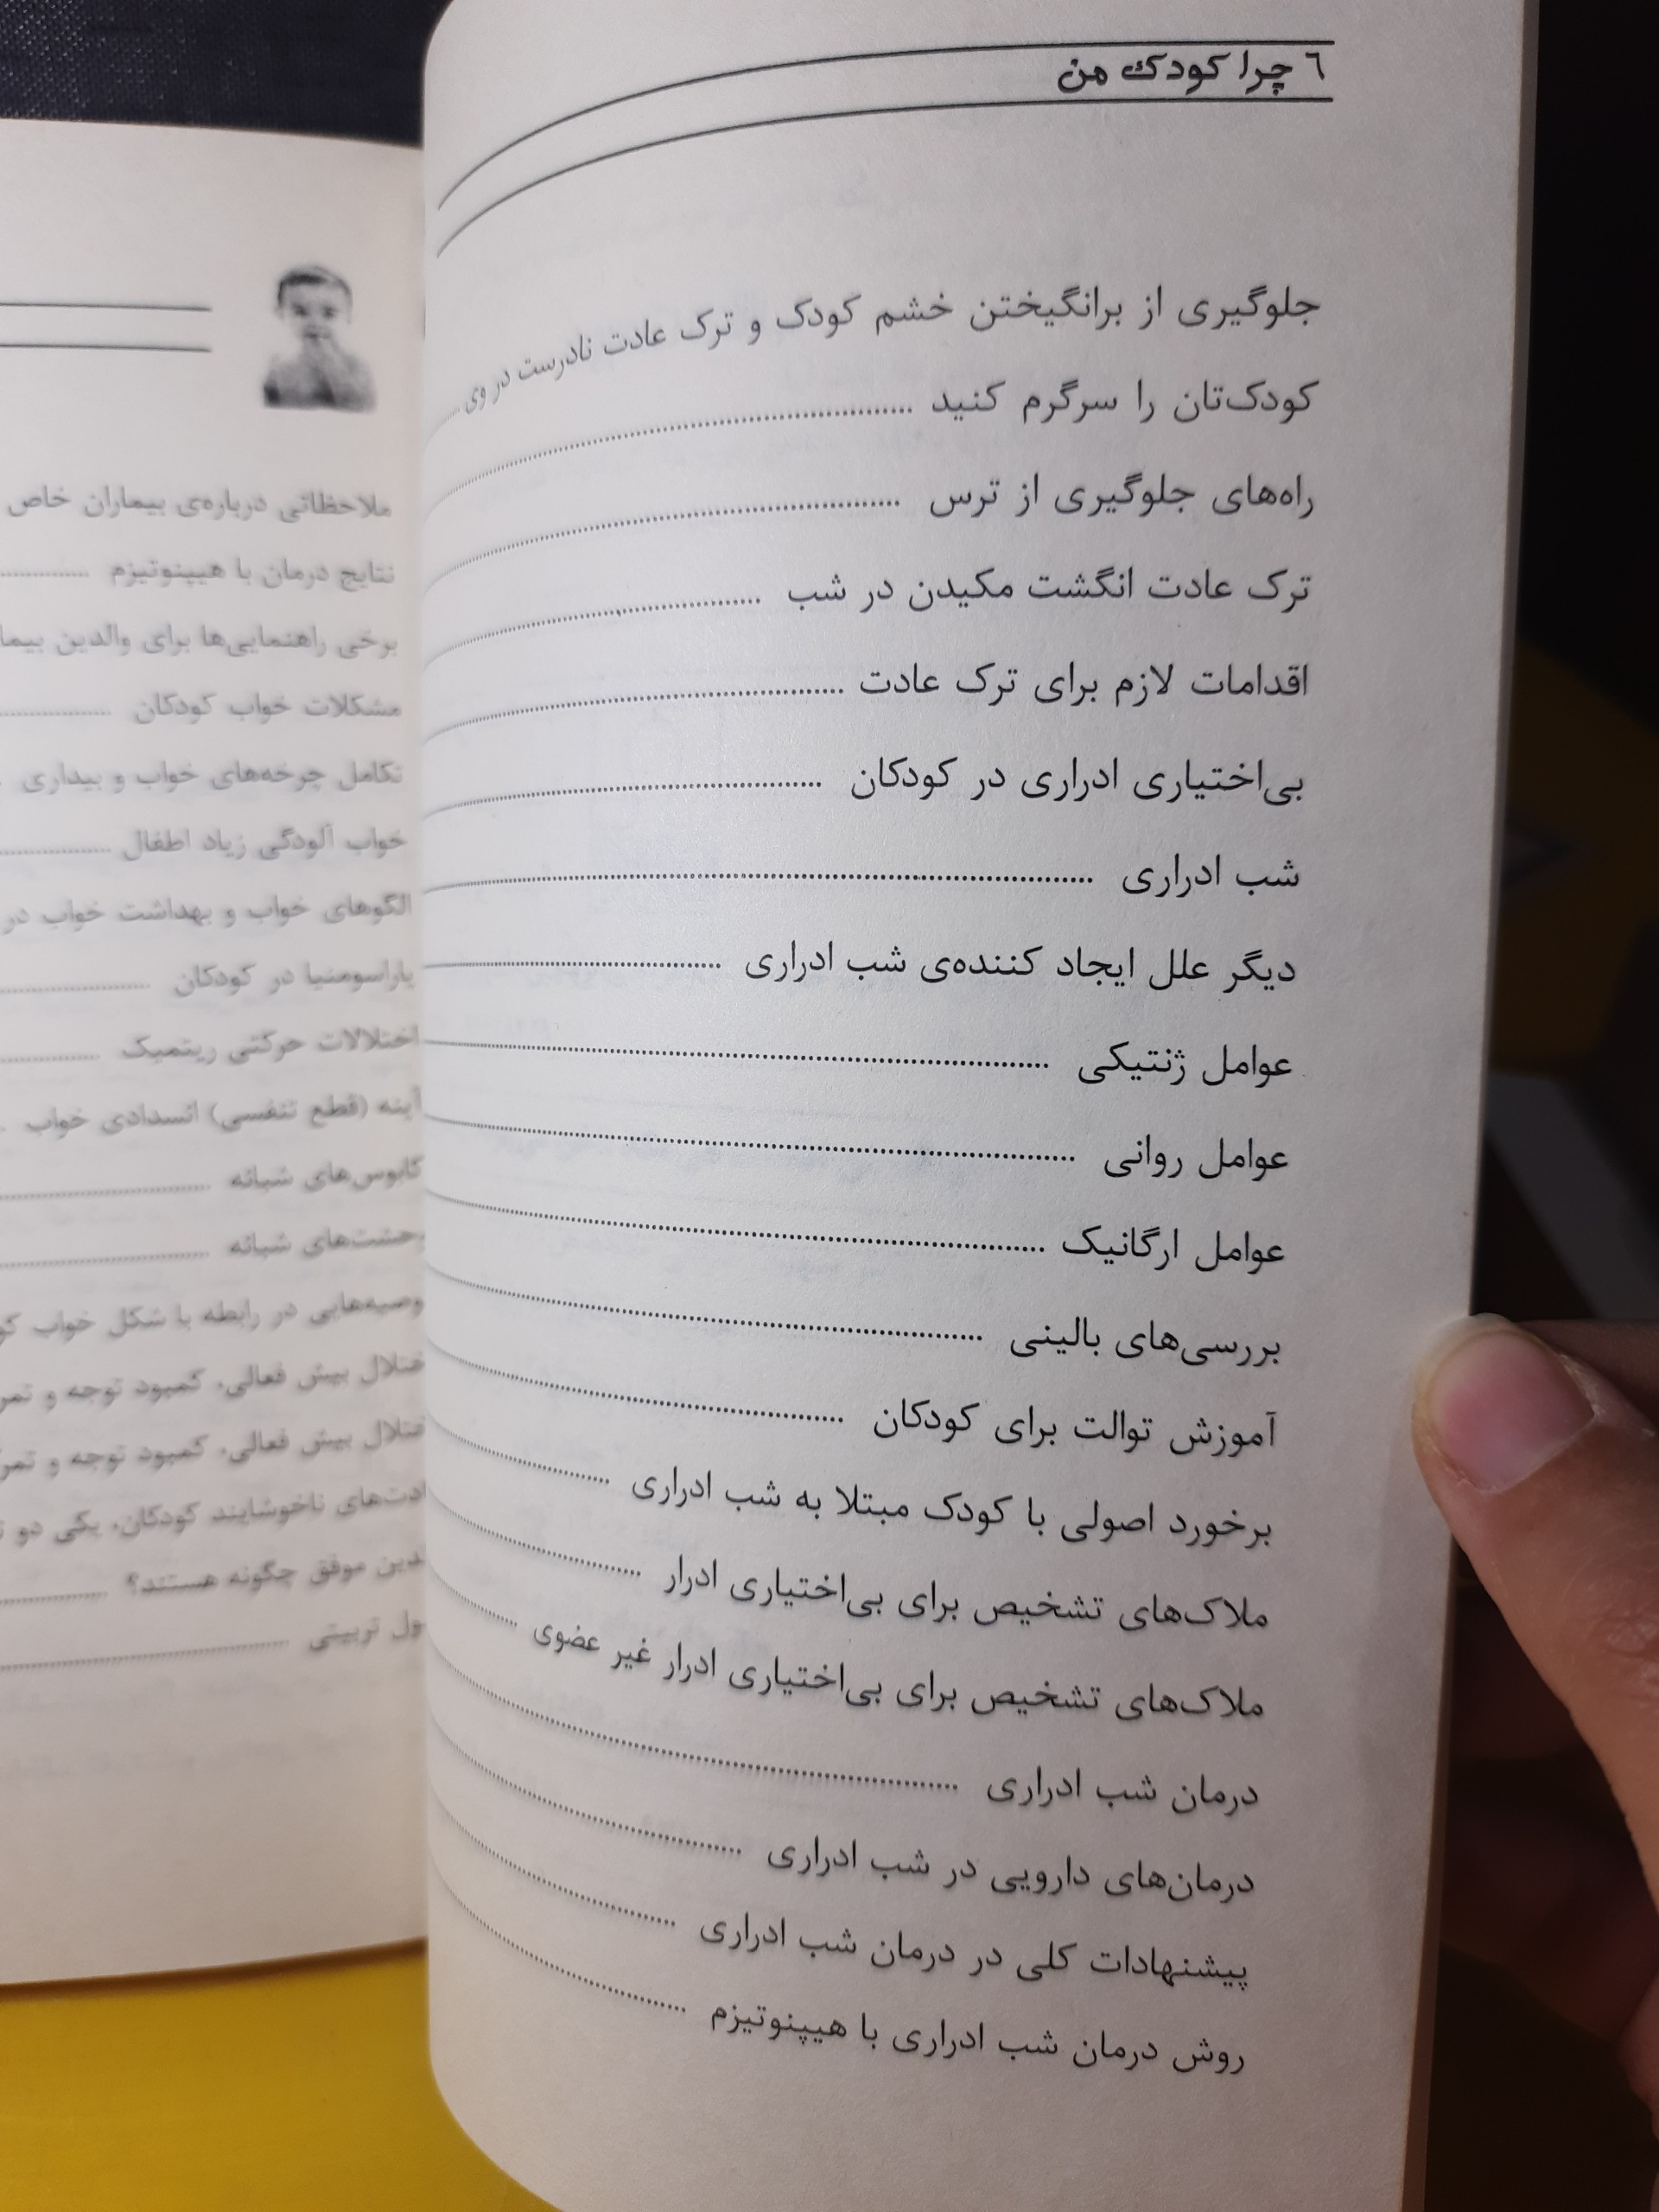 ٦ چرا كودك من
جلوگیری از برانگیختن خشم کودک و ترک عادت نادرست در وی
کودک‌تان را سرگرم کنید
راه‌های جلوگیری از ترس
ترک عادت انگشت مکیدن در شب
اقدامات لازم برای ترک عادت
بی‌اختیاری ادراری در کودکان
شب ادراری
دیگر علل ایجاد کننده‌ی شب ادراری
عوامل ژنتیکی
عوامل روانی
عوامل ارگانیک
بررسی‌های بالینی
آموزش توالت برای کودکان
برخورد اصولی با کودک مبتلا به شب ادراری
ملاک‌های تشخیص برای بی‌اختیاری ادرار
ملاک‌های تشخیص برای بی‌اختیاری ادرار غیر عضوی
درمان شب ادراری
درمان‌های دارویی در شب ادراری
پیشنهادات کلی در درمان شب ادراری
روش درمان شب ادراری با هیپنوتیزم
ملاحظاتی درباره‌ی بیماران خاص
نتایج درمان با هیپنوتیزم
برخی راهنمایی‌ها برای والدین
مشکلات خواب کودکان
تکامل چرخه‌های خواب و بیداری
خواب آلودگی زیاد اطفال
الگوهای خواب و بهداشت خواب در
پاراسومنیا در کودکان
اختلالات حرکتی ریتمیک
آپنه (قطع تنفسی) انسدادی خواب
کابوس‌های شبانه
وحشت‌های شبانه
در رابطه با شکل خواب
بیش فعالی، کمبود توجه و
بیش فعالی، کمبود توجه و
ناخوشایند کودکان، یکی دو
موفق چگونه هستند؟
تربیتی